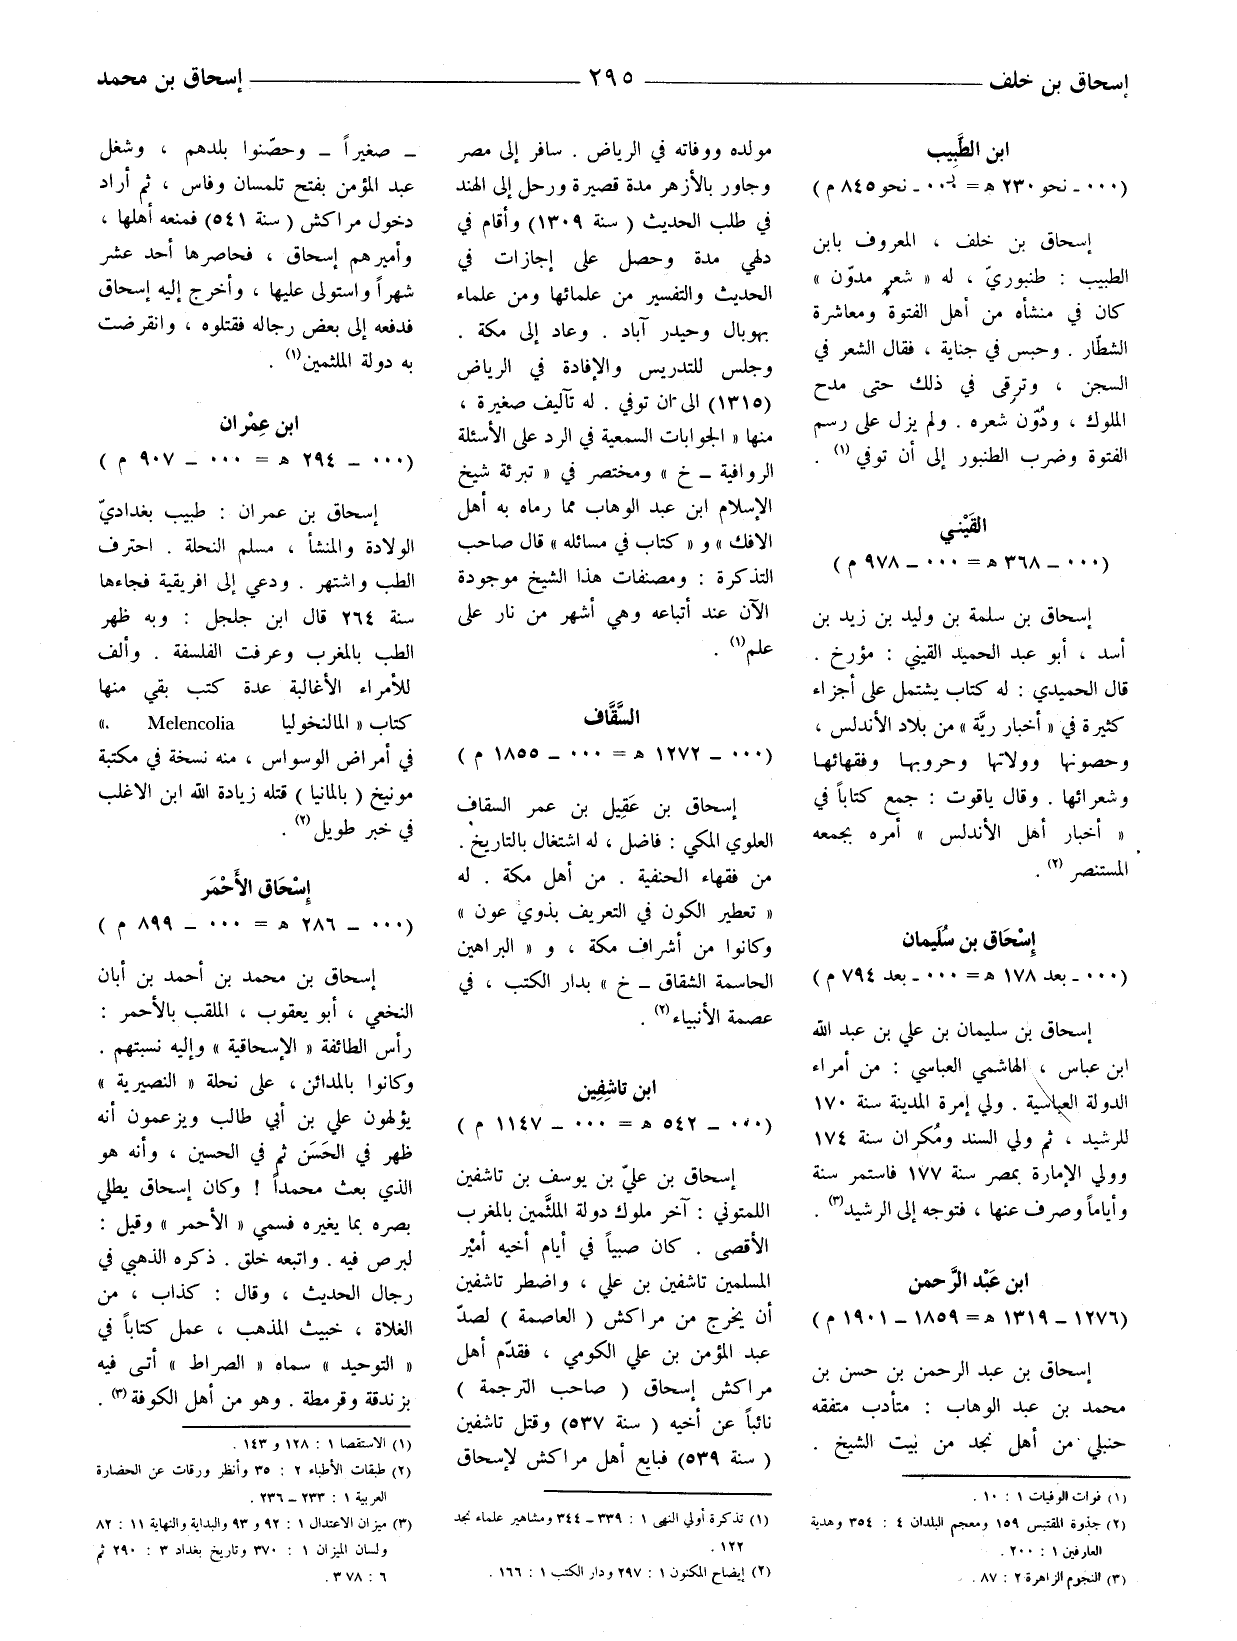 إسحاق بن خلف ٢٩٥ إسحاق بن محمد
ابن الطَّبِيب
(٠٠٠ ـ نحو ٢٣٠ ه‍ = ٠٠٠ ـ نحو ٨٤٥ م)
إسحاق بن خلف ، المعروف بابن
الطبيب : طنبوريّ ، له « شعر مدوّن »
كان في منشأه من أهل الفتوة ومعاشرة
الشطّار . وحبس في جناية ، فقال الشعر في
السجن ، وترقى في ذلك حتى مدح
الملوك ، ودُوّن شعره . ولم يزل على رسم
الفتوة وضرب الطنبور إلى أن توفي (١) .
القَيْني
(٠٠٠ ـ ٣٦٨ ه‍ = ٠٠٠ ـ ٩٧٨ م)
إسحاق بن سلمة بن وليد بن زيد بن
أسد ، أبو عبد الحميد القيني : مؤرخ .
قال الحميدي : له كتاب يشتمل على أجزاء
كثيرة في « أخبار ريَّة » من بلاد الأندلس ،
وحصونها وولاتها وحروبها وفقهائها
وشعرائها . وقال ياقوت : جمع كتاباً في
« أخبار أهل الأندلس » أمره بجمعه
المستنصر (٢) .
إسْحَاق بن سُلَيمان
(٠٠٠ ـ بعد ١٧٨ ه‍ = ٠٠٠ ـ بعد ٧٩٤ م)
إسحاق بن سليمان بن علي بن عبد الله
ابن عباس ، الهاشمي العباسي : من أمراء
الدولة العباسية . ولي إمرة المدينة سنة ١٧٠
للرشيد ، ثم ولي السند ومُكران سنة ١٧٤
وولي الإمارة بمصر سنة ١٧٧ فاستمر سنة
وأياماً وصرف عنها ، فتوجه إلى الرشيد (٣) .
ابن عَبْد الرَّحمن
(١٢٧٦ ـ ١٣١٩ ه‍ = ١٨٥٩ ـ ١٩٠١ م)
إسحاق بن عبد الرحمن بن حسن بن
محمد بن عبد الوهاب : متأدب متفقه
حنبلي من أهل نجد من بيت الشيخ .
(١) فوات الوفيات ١ : ١٠ .
(٢) جذوة المقتبس ١٥٩ ومعجم البلدان ٤ : ٣٥٤ وهدية
العارفين ١ : ٢٠٠ .
(٣) النجوم الزاهرة ٢ : ٨٧ .
مولده ووفاته في الرياض . سافر إلى مصر
وجاور بالأزهر مدة قصيرة ورحل إلى الهند
في طلب الحديث ( سنة ١٣٠٩) وأقام في
دلهي مدة وحصل على إجازات في
الحديث والتفسير من علمائها ومن علماء
بهوبال وحيدر آباد . وعاد إلى مكة .
وجلس للتدريس والإفادة في الرياض
(١٣١٥) الى أن توفي . له تآليف صغيرة ،
منها « الجوابات السمعية في الرد على الأسئلة
الروافية ـ خ » ومختصر في « تبرئة شيخ
الإسلام ابن عبد الوهاب مما رماه به أهل
الافك » و « كتاب في مسائله » قال صاحب
التذكرة : ومصنفات هذا الشيخ موجودة
الآن عند أتباعه وهي أشهر من نار على
علم (١) .
السَّقَّاف
(٠٠٠ ـ ١٢٧٢ ه‍ = ٠٠٠ ـ ١٨٥٥ م)
إسحاق بن عَقِيل بن عمر السقاف
العلوي المكي : فاضل ، له اشتغال بالتاريخ .
من فقهاء الحنفية . من أهل مكة . له
« تعطير الكون في التعريف بذوي عون »
وكانوا من أشراف مكة ، و « البراهين
الحاسمة الشقاق ـ خ » بدار الكتب ، في
عصمة الأنبياء (٢) .
ابن تاشفِين
(٠٠٠ ـ ٥٤٢ ه‍ = ٠٠٠ ـ ١١٤٧ م)
إسحاق بن عليّ بن يوسف بن تاشفين
اللمتوني : آخر ملوك دولة الملثَّمين بالمغرب
الأقصى . كان صبياً في أيام أخيه أمير
المسلمين تاشفين بن علي ، واضطر تاشفين
أن يخرج من مراكش ( العاصمة ) لصدّ
عبد المؤمن بن علي الكومي ، فقدّم أهل
مراكش إسحاق ( صاحب الترجمة )
نائباً عن أخيه ( سنة ٥٣٧) وقتل تاشفين
( سنة ٥٣٩) فبايع أهل مراكش لإسحاق
(١) تذكرة أولي النهى ١ : ٣٣٩ ـ ٣٤٤ ومشاهير علماء نجد
١٢٢ .
(٢) إيضاح المكنون ١ : ٢٩٧ ودار الكتب ١ : ١٦٦ .
ـ صغيراً ـ وحصّنوا بلدهم ، وشغل
عبد المؤمن بفتح تلمسان وفاس ، ثم أراد
دخول مراكش ( سنة ٥٤١) فمنعه أهلها ،
وأميرهم إسحاق ، فحاصرها أحد عشر
شهراً واستولى عليها ، وأخرج إليه إسحاق
فدفعه إلى بعض رجاله فقتلوه ، وانقرضت
به دولة الملثمين (١) .
ابن عِمْران
(٠٠٠ ـ ٢٩٤ ه‍ = ٠٠٠ ـ ٩٠٧ م)
إسحاق بن عمران : طبيب بغداديّ
الولادة والمنشأ ، مسلم النحلة . احترف
الطب واشتهر . ودعي إلى افريقية فجاءها
سنة ٢٦٤ قال ابن جلجل : وبه ظهر
الطب بالمغرب وعرفت الفلسفة . وألف
للأمراء الأغالبة عدة كتب بقي منها
كتاب « المالنخوليا Melencolia ».
في أمراض الوسواس ، منه نسخة في مكتبة
مونيخ ( بالمانيا ) قتله زيادة الله ابن الاغلب
في خبر طويل (٢) .
إسْحَاق الأَحْمَر
(٠٠٠ ـ ٢٨٦ ه‍ = ٠٠٠ ـ ٨٩٩ م)
إسحاق بن محمد بن أحمد بن أبان
النخعي ، أبو يعقوب ، الملقب بالأحمر :
رأس الطائفة « الإسحاقية » وإليه نسبتهم .
وكانوا بالمدائن ، على نحلة « النصيرية »
يؤلهون علي بن أبي طالب ويزعمون أنه
ظهر في الحَسَن ثم في الحسين ، وأنه هو
الذي بعث محمداً ! وكان إسحاق يطلي
بصره بما يغيره فسمي « الأحمر » وقيل :
لبرص فيه . واتبعه خلق . ذكره الذهبي في
رجال الحديث ، وقال : كذاب ، من
الغلاة ، خبيث المذهب ، عمل كتاباً في
« التوحيد » سماه « الصراط » أتى فيه
بزندقة وقرمطة . وهو من أهل الكوفة (٣) .
(١) الاستقصا ١ : ١٢٨ و ١٤٣ .
(٢) طبقات الأطباء ٢ : ٣٥ وأنظر ورقات عن الحضارة
العربية ١ : ٢٣٣ ـ ٢٣٦ .
(٣) ميزان الاعتدال ١ : ٩٢ و ٩٣ والبداية والنهاية ١١ : ٨٢
ولسان الميزان ١ : ٣٧٠ وتاريخ بغداد ٣ : ٢٩٠ ثم
٦ : ٣٧٨ .